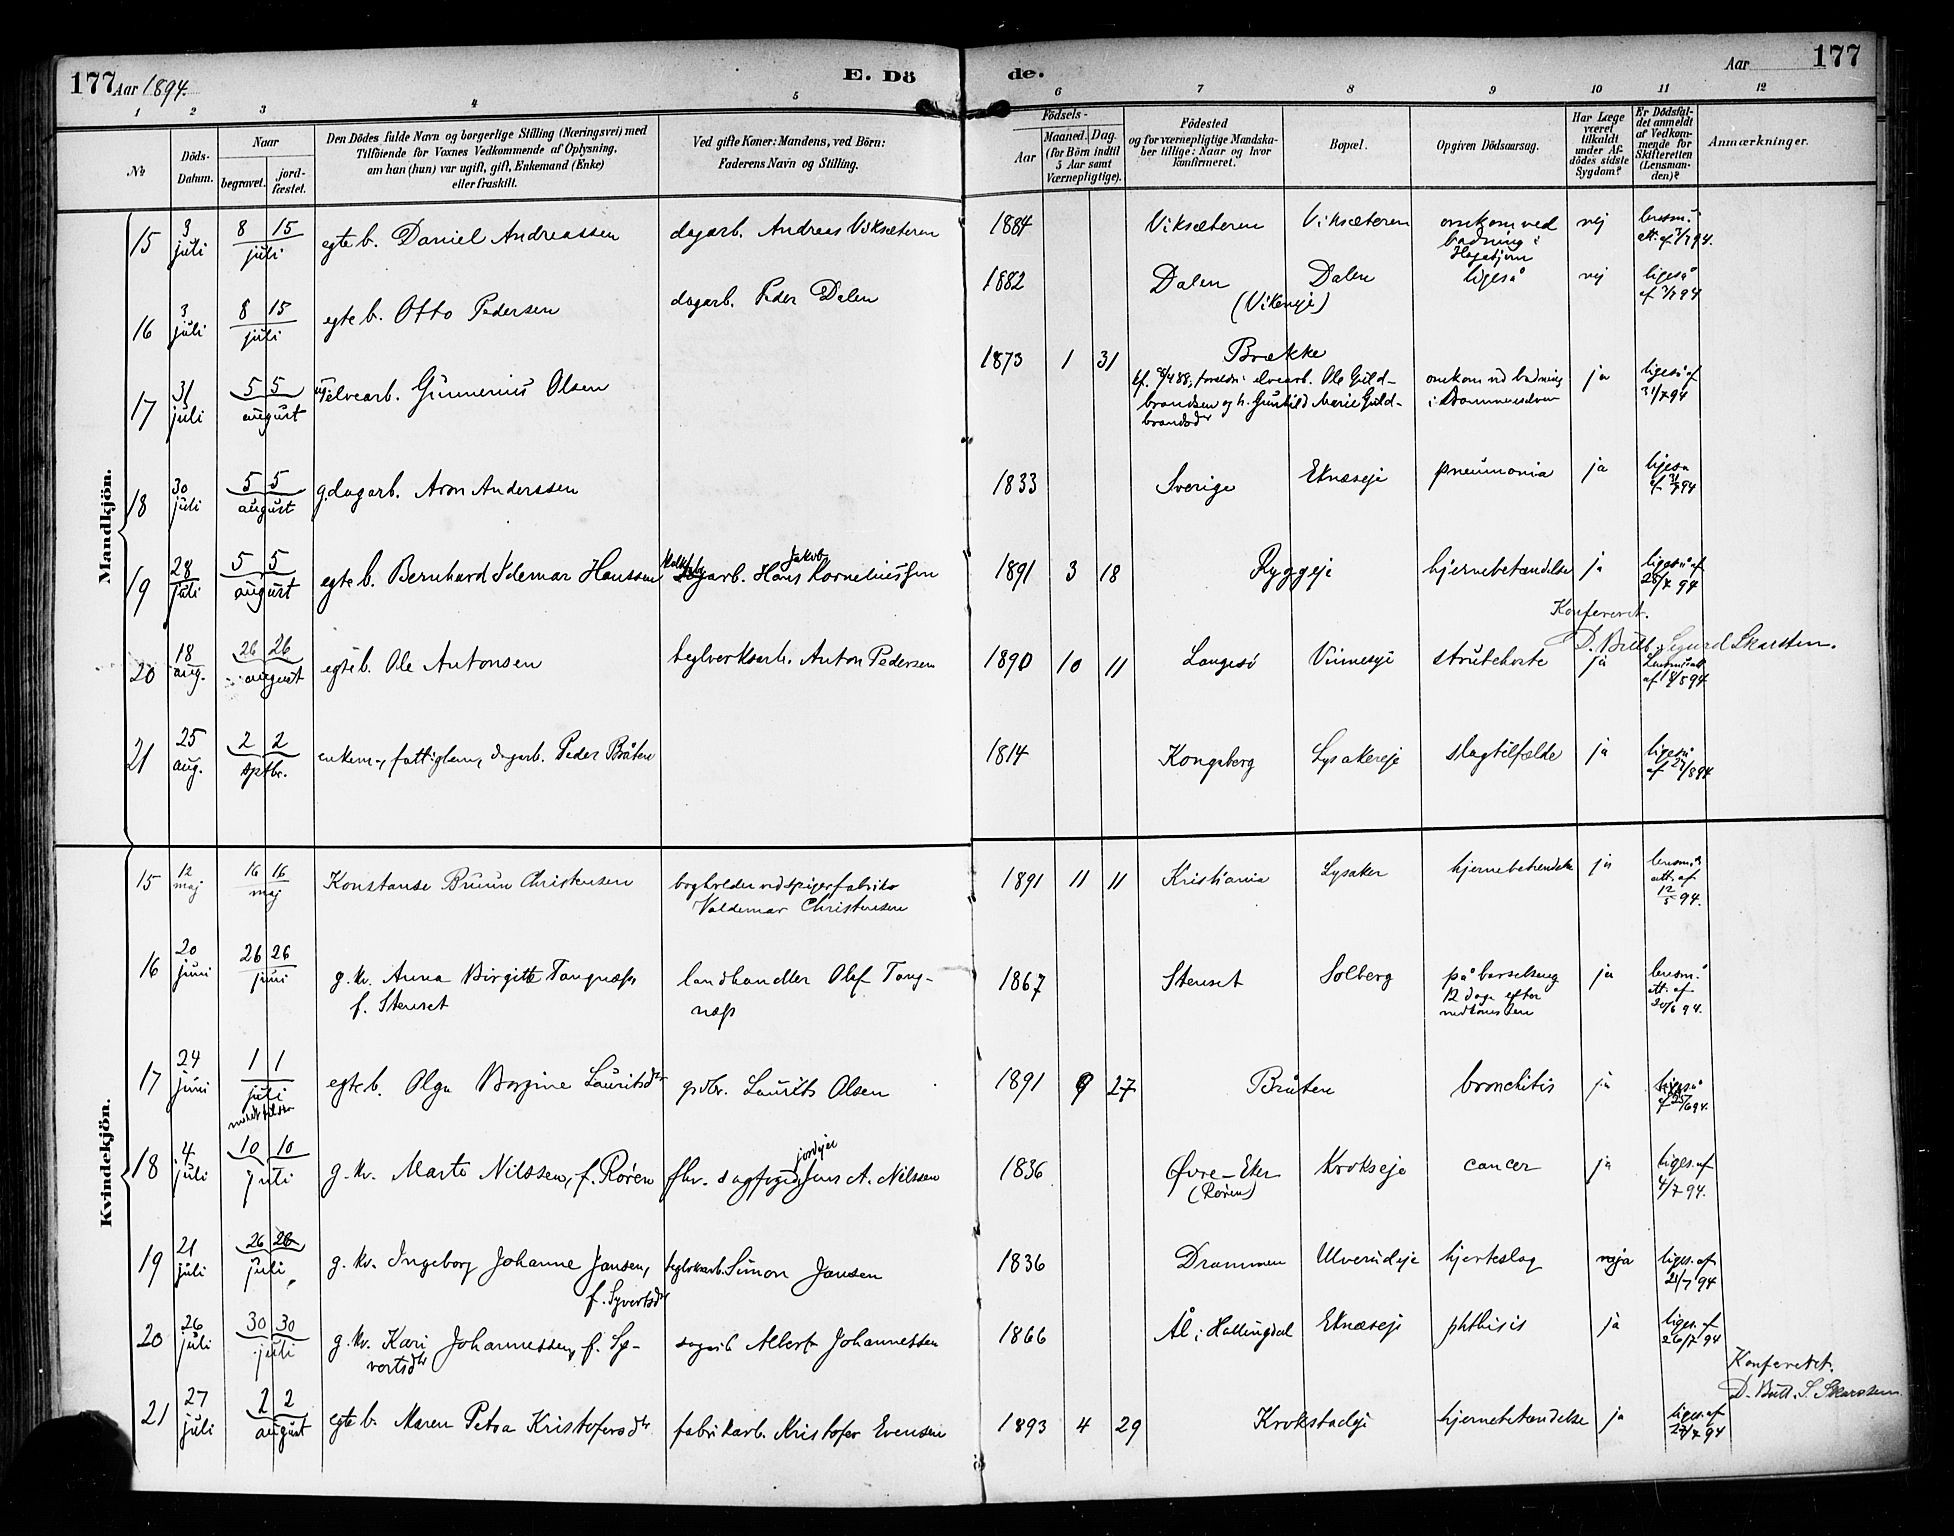 177 Aar 1894. E. Dö
de. Aar 177
1 2 3 4 5 6 7 8 9 10 11 12
No
Döds-Datum.
Naar
begravet. jordfæstet.
Den Dödes fulde Navn og borgerlige Stilling (Næringsvei) med
Tilföiende for Voxnes Vedkommende af Oplysning,
om han (hun) var ugift, gift, Enkemand (Enke)
eller fraskilt.
Ved gifte Koner: Mandens, ved Börn:
Faderens Navn og Stilling.
Födsels-
Aar Maaned. Dag.
(for Börn indtil
5 Aar samt
Værnepligtige).
Födested
og for værnepligtige Mandska-
ber tillige: Naar og hvor
konfirmeret.
Bopæl.
Opgiven Dödsaarsag.
Har Læge
været
tilkaldt
under Af-
dödes sidste
Sygdom?
Er Dödsfal-
det anmeldt
af Vedkom-
mende for
Skifteretten
(Lensman-
den)?
Anmærkninger.
Mandkjön.
15 3 juli 8 15 juli egte b. Daniel Andreassen dagarb. Andreas Viksæteren 1884 Viksæteren Viksæteren omkom ved badning i nej lensm. att. af 3/7 94.
16 3 juli 8 15 juli egte b. Otto Pedersen dagarb. Peder Dalen 1882 Dalen (Vikeneje) Dalen ligeså nej ligeså af 3/7 94
17 31 juli 5 5 august elvearb. Gunnerius Olsen 1873 1 31 Brække
forældre: elvearb. Ole Guld-
brandsen og h. Gunhild Marie Guld-
brandsdtr
omkom ved badning i ja ligeså af 31/7 94
18 30 juli 5 5 august g. dagarb. Aron Anderssen 1833 Sverige Eknæseje pneumonia ja ligeså af 31/7 94
19 28 juli 5 5 august egte b. Bernhard Idemar Hanssen Hans Jakob Korneliussen 1891 3 18 Ryggeje hjernebetændelse ja ligeså af 28/7 94
Konfereret.
D. Butt. Sigurd Skarsten.
20 18 aug. 26 26 august egte b. Ole Antonsen teglverksarb. Anton Pedersen 1890 10 11 Langesö Vinneseje strubehoste ja
21 25 aug. 2 2 sptbr. enkem., fattiglem, dagarb. Peder Bråten 1814 Kongsberg Lysakereje slagtilfælde ja ligeså af 27/8 94
Kvindekjön.
15 12 maj 16 16 maj Konstanse Bruun Christensen bogholder ved spigerfabrikv Valdemar Christensen 1891 11 11 Kristiania Lysaker hjernebetændelse ja lensm.s att. af 12/5 94.
16 20 juni 26 26 juni g. kv. Anna Birgitte Tangnæss, f. Stenset landhandler Olaf Tang-
næss 1867 Stenset Solberg på barselseng 12 dage efter nedkomsten ja lensm.s att. af 20/6 94.
17 24 juni 1 1 juli egte b. Olga Borgine Lauritsdtr gdbr. Laurits Olsen 1891 9 27 Bråten bronchitis ja ligeså af 25/6 94.
18 4 juli 10 10 juli g. kv. Marte Nilssen, f. Rören jordejer Jens A. Nilssen 1836 Övre-Eker (Rören) Krokseje cancer ja liges. af 4/7 94.
19 21 juli 26 26 juli g. kv. Ingeborg Johanne Jansen, f. Syvertsdtr teglvksarb. Simon Jansen 1836 Drammen Ulverudeje hjerteslag ja liges. af 21/7 94
20 26 juli 30 30 juli g. kv. Kari Johannessen, f. Sy-
vertsdtr Albert Johannessen 1866 Ål i Hallingdal Eknæseje phthisis ja liges. af 26/7 94
Konfereret.
D. Butt. S. Skarsten
21 27 juli 2 2 august egte b. Maren Petra Kristofersdtr fabrikarb. Kristofer Evensen 1893 4 29 Krokstadeje hjernebetændelse ja liges. af 27/7 94